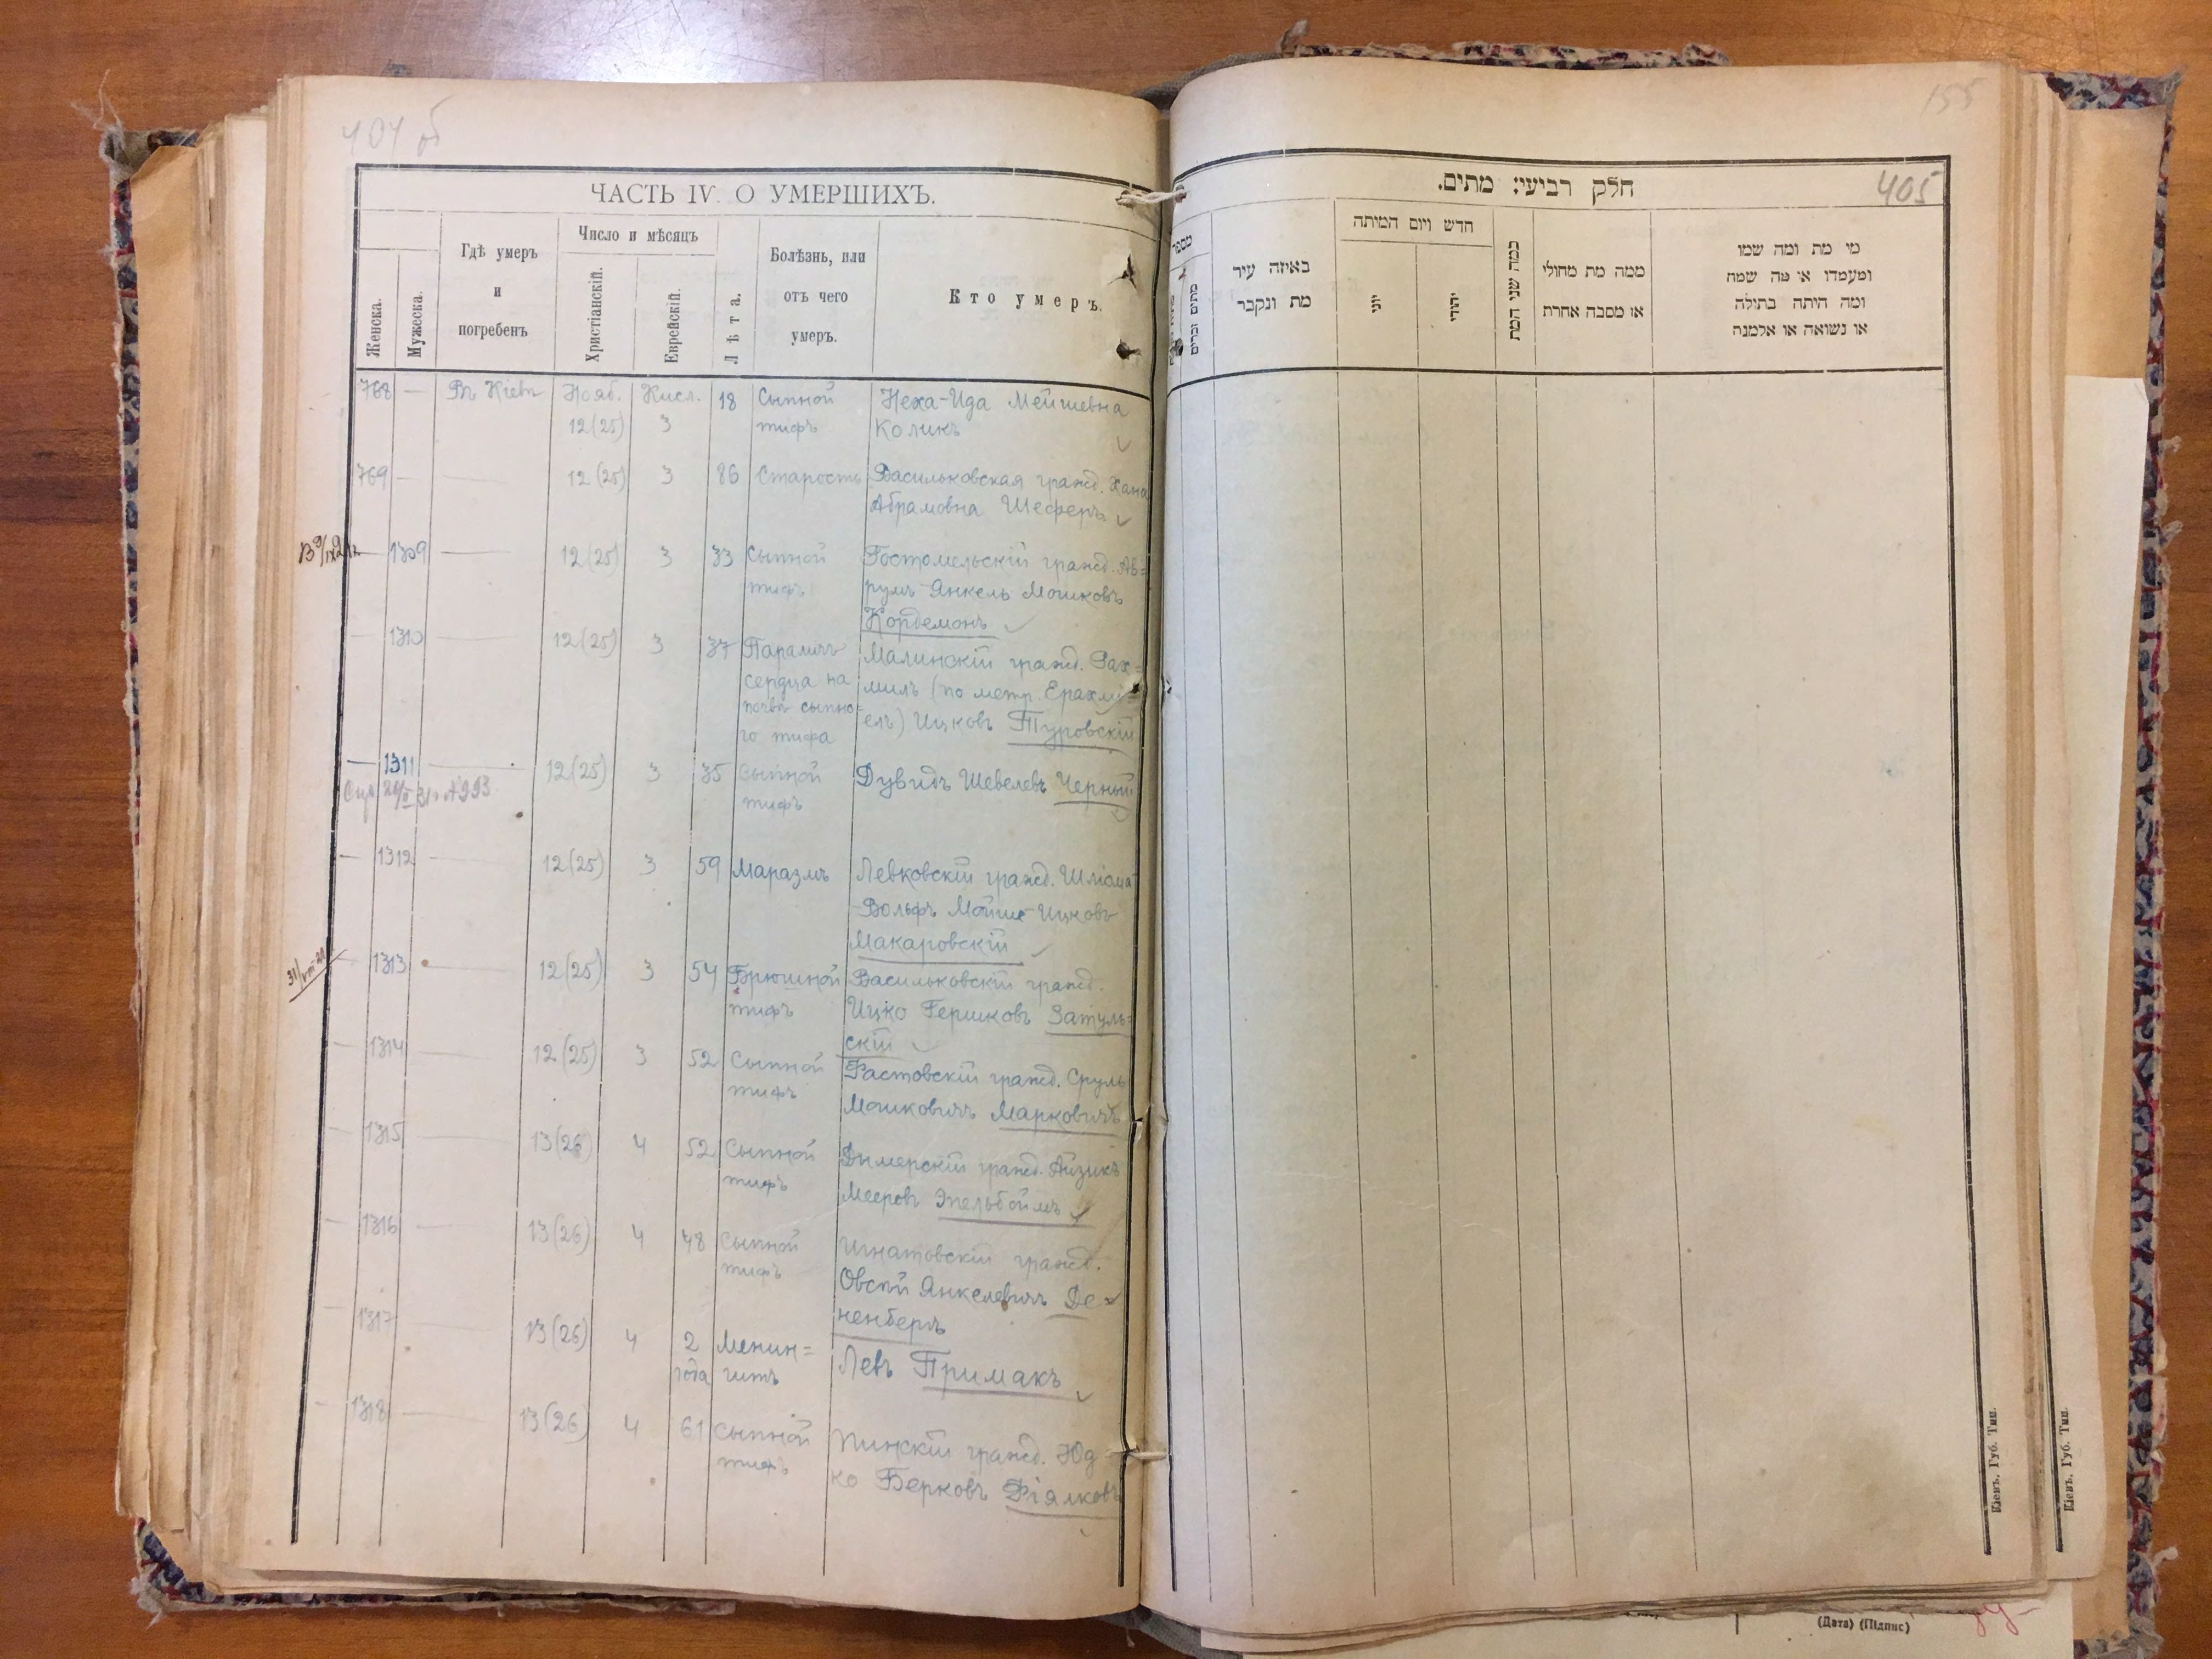 404 об
ЧАСТЬ IV. О УМЕРШИХЪ.
Женска.
Мужеска.
Гдѣ умеръ
и
погребенъ
Число и мѣсяцъ
Христіанскій.
Еврейскій.
Лѣта.
Болѣзнь, или
отъ чего
умеръ.
Кто умеръ.
768 — Въ Кіевѣ Нояб. Кисл. 18 Сыпной Неха-Ида Мейшевна
12(25) 3 тифъ Коликъ
769 — 12(25) 3 86 Старость Васильковская гражд. Хана
Абрамовна Шеферъ
— 1309 12(25) 3 33 Сыпной Гостомельскій гражд. Ав=
тифъ румъ-Янкель Мошковъ
Кордемонъ
— 1310 12(25) 3 37 Параличъ Малинскій гражд. Рах=
сердца на миль (по метр. Ерахми=
почвѣ сыпно= ель) Ицковъ Туровскій
го тифа
— 1311 12(25) 3 35 Сыпной Дувидъ Шевелевъ Черный
тифъ
— 1312 12(25) 3 59 Маразмъ Левковскій гражд. Шліома
-Вольфъ Мойше-Ицковъ
Макаровскій
— 1313 12(25) 3 54 Брюшной Васильковскій гражд.
тифъ Ицко Гершковъ Затуль=
скій
— 1314 12(25) 3 52 Сыпной Фастовскій гражд. Сруль
тифъ Мошковичъ Марковичъ
— 1315 13(26) 4 52 Сыпной Дымерскій гражд. Айзикъ
тифъ Мееровъ Эпельбоймъ
— 1316 13(26) 4 48 Сыпной Игнатовскій гражд.
тифъ Овсѣй Янкелевичъ Де=
ненбергъ
1317 13(26) 4 2 Менин= Левъ Примакъ
года гитъ
— 1318 13(26) 4 61 Сыпной Пинскій гражд. Юд-
тифъ ко Берковъ Фіялковъ
155
405
חלק רביעי: מתים.
מספר
מתים זכרים
באיזה עיר
מת ונקבר
חדש ויום המיתה
יוני
יהודי
כמה שני המת
ממה מת מחולי
או מסבה אחרת
מי מת ומה שמו
ומעמדו או מה שמה
ומה היתה בתילה
או נשואה או אלמנה
Кіевъ. Губ. Тип.
Кіевъ. Губ. Тип.
(Дата) (Підпис)